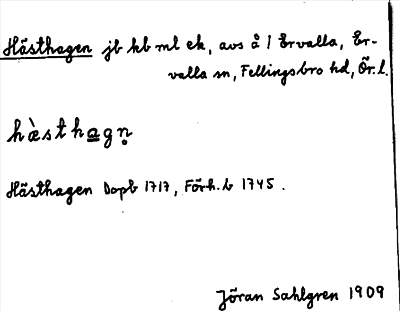 Hästhagen jb hb ml ek, avs å l Ervalla, Er-
valla sn, Fellingsbro hd, Ör. l.
hàsthagn̥
Hästhagen Dopb 1717, Förh.b 1745.
Jöran Sahlgren 1909